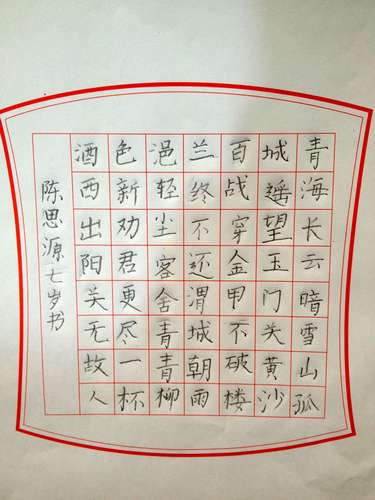 青海长云暗雪山孤
城遥望玉门关黄沙
百战穿金甲不破楼
兰终不还渭城朝雨
浥轻尘客舍青青柳
色新劝君更尽一杯
酒西出阳关无故人
陈思源七岁书